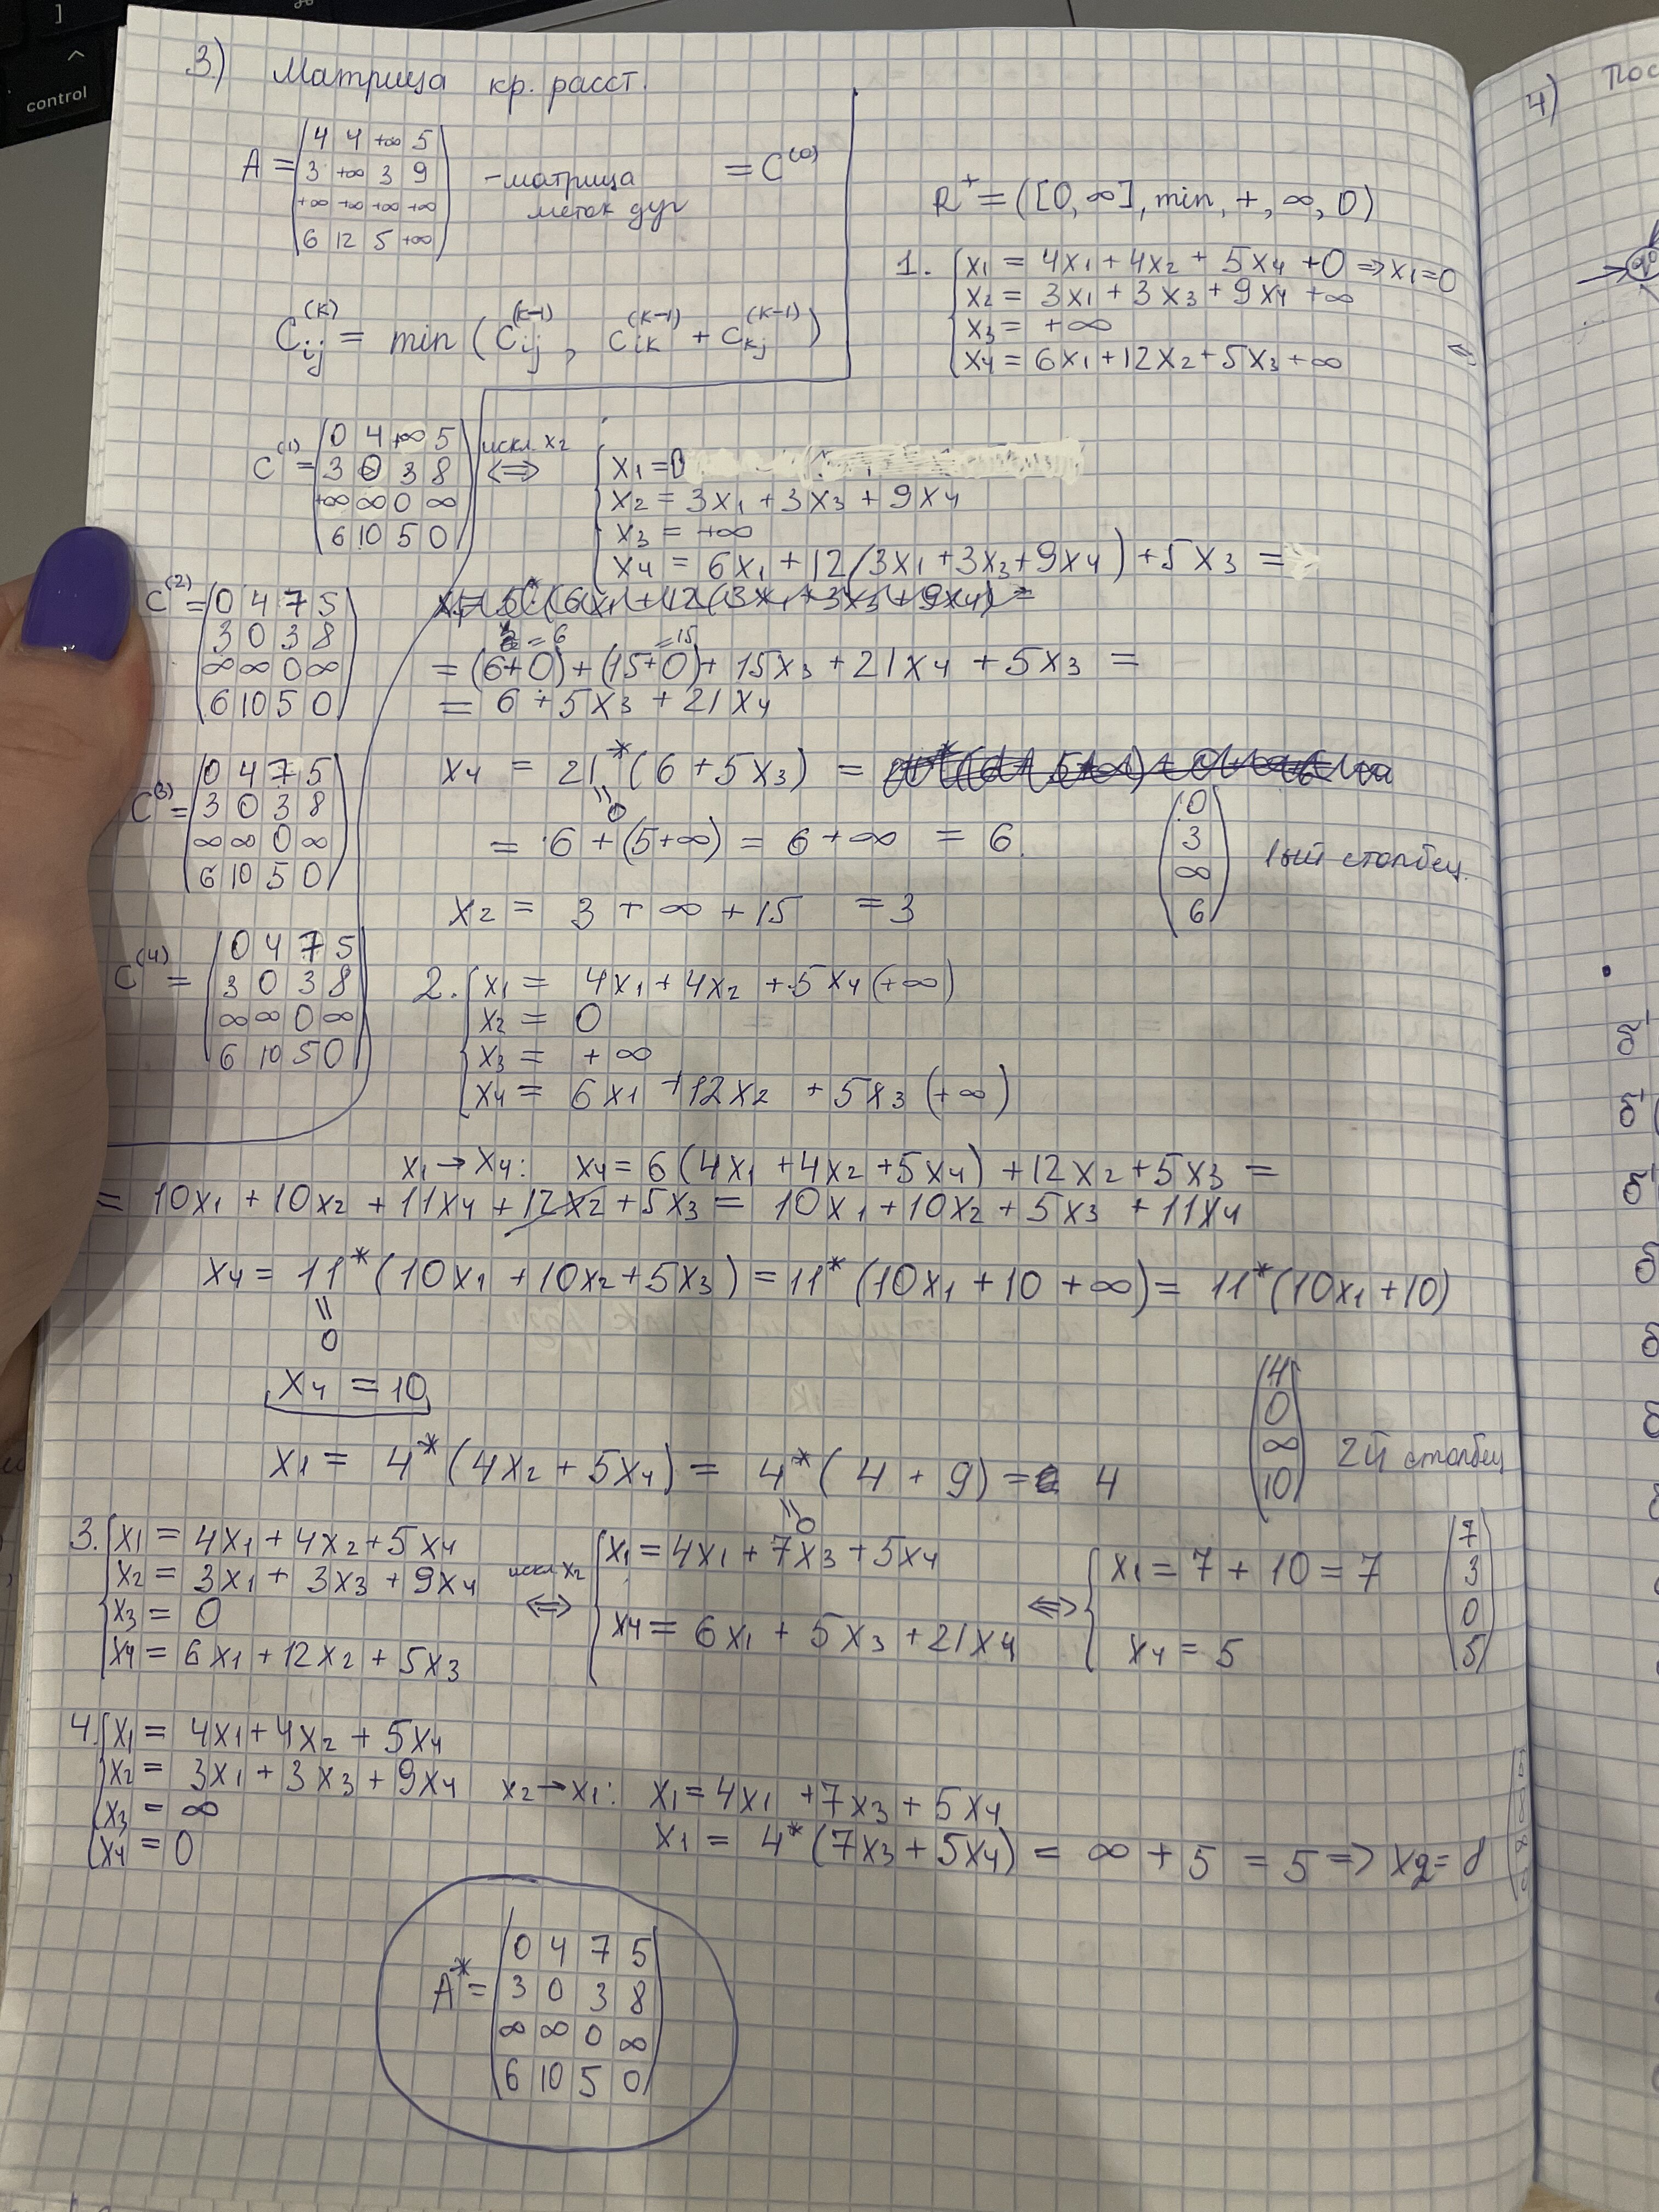 ]
control
3) Матрица кр. расст.
A = (4 4 +∞ 5
3 +∞ 3 9
+∞ +∞ +∞ +∞
6 12 5 +∞) - матрица меток дуг = C^(0)
C_ij^(k) = min (C_ij^(k-1), C_ik^(k-1) + C_kj^(k-1))
C^(1) = (0 4 +∞ 5
3 0 3 8
+∞ ∞ 0 ∞
6 10 5 0)
C^(2) = (0 4 7 5
3 0 3 8
∞ ∞ 0 ∞
6 10 5 0)
C^(3) = (0 4 7 5
3 0 3 8
∞ ∞ 0 ∞
6 10 5 0)
C^(4) = (0 4 7 5
3 0 3 8
∞ ∞ 0 ∞
6 10 5 0)
R^+ = ([0, ∞], min, +, ∞, 0)
1. { x1 = 4x1 + 4x2 + 5x4 + 0 => x1 = 0
x2 = 3x1 + 3x3 + 9x4 + ∞
x3 = +∞
x4 = 6x1 + 12x2 + 5x3 + ∞ ⇔
искл. x2
⇔ { x1 = 0
x2 = 3x1 + 3x3 + 9x4
x3 = +∞
x4 = 6x1 + 12(3x1 + 3x3 + 9x4) + 5x3 =
=6 =15
= (6+0) + (15+0) + 15x3 + 21x4 + 5x3 =
= 6 + 5x3 + 21x4
x4 = 21*(6 + 5x3) =
"
0
= 6 + (5+∞) = 6 + ∞ = 6.
x2 = 3 + ∞ + 15 = 3
(0
3
∞
6) 1ый столбец.
2. { x1 = 4x1 + 4x2 + 5x4 (+∞)
x2 = 0
x3 = +∞
x4 = 6x1 + 12x2 + 5x3 (+∞)
x1 → x4: x4 = 6(4x1 + 4x2 + 5x4) + 12x2 + 5x3 =
= 10x1 + 10x2 + 11x4 + 12x2 + 5x3 = 10x1 + 10x2 + 5x3 + 11x4
x4 = 11*(10x1 + 10x2 + 5x3) = 11*(10x1 + 10 + ∞) = 11*(10x1 + 10)
"
0
x4 = 10
x1 = 4*(4x2 + 5x4) = 4*(4 + 9) = 4
"
0
(4
0
∞
10) 2й столбец
3. { x1 = 4x1 + 4x2 + 5x4
x2 = 3x1 + 3x3 + 9x4
x3 = 0
x4 = 6x1 + 12x2 + 5x3
искл x2
⇔ { x1 = 4x1 + 7x3 + 5x4
x4 = 6x1 + 5x3 + 21x4
⇔ { x1 = 7 + 10 = 7
x4 = 5
(7
3
0
5)
4. { x1 = 4x1 + 4x2 + 5x4
x2 = 3x1 + 3x3 + 9x4
x3 = ∞
x4 = 0
x2 → x1: x1 = 4x1 + 7x3 + 5x4
x1 = 4*(7x3 + 5x4) = ∞ + 5 = 5 => x2 = 8
(5
8
∞
0)
A* = (0 4 7 5
3 0 3 8
∞ ∞ 0 ∞
6 10 5 0)
4) Пос